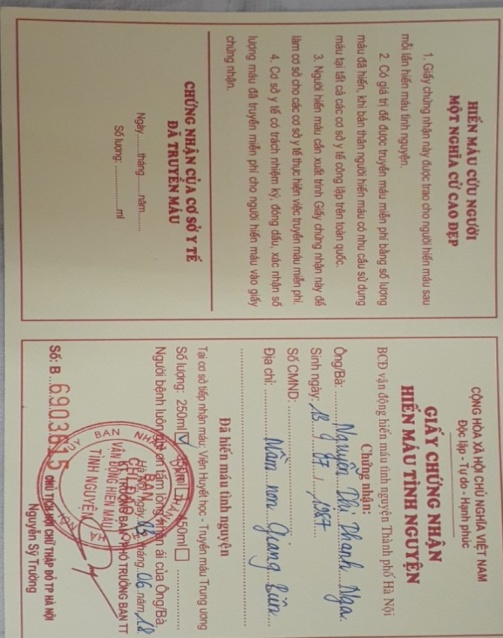 HIẾN MÁU CỨU NGƯỜI
MỘT NGHĨA CỬ CAO ĐẸP
1. Giấy chứng nhận này được trao cho người hiến máu sau
mỗi lần hiến máu tình nguyện.
2. Có giá trị để được truyền máu miễn phí bằng số lượng
máu đã hiến, khi bản thân người hiến máu có nhu cầu sử dụng
máu tại tất cả các cơ sở y tế công lập trên toàn quốc.
3. Người hiến máu cần xuất trình Giấy chứng nhận này để
làm cơ sở cho các cơ sở y tế thực hiện việc truyền máu miễn phí.
4. Cơ sở y tế có trách nhiệm ký, đóng dấu, xác nhận số
lượng máu đã truyền miễn phí cho người hiến máu vào giấy
chứng nhận.
CHỨNG NHẬN CỦA CƠ SỞ Y TẾ
ĐÃ TRUYỀN MÁU
Ngày......tháng......năm......
Số lượng: ............ml
CỘNG HÒA XÃ HỘI CHỦ NGHĨA VIỆT NAM
Độc lập - Tự do - Hạnh phúc
GIẤY CHỨNG NHẬN
HIẾN MÁU TÌNH NGUYỆN
BCĐ vận động hiến máu tình nguyện Thành phố Hà Nội
Chứng nhận:
Ông/Bà: Nguyễn Thị Thanh Nga
Sinh ngày: 18 / 07 / 1967
Số CMND:
Địa chỉ: Mầm non Giang Biên
Đã hiến máu tình nguyện
Tại cơ sở tiếp nhận máu: Viện Huyết học - Truyền máu Trung ương
Số lượng: 250ml
Người bệnh luôn ghi ơn tấm lòng nhân ái của Ông/Bà.
ngày 03 tháng 06 năm 18
KT.TRƯỞNG BAN PHÓ TRƯỞNG BAN TT
ỦY BAN NHÂN
BAN
CHỈ ĐẠO
VẬN ĐỘNG HIẾN MÁU
TÌNH NGUYỆN
Số: B 6903815
CHỦ TỊCH HỘI CHỮ THẬP ĐỎ TP HÀ NỘI
Nguyễn Sỹ Trường